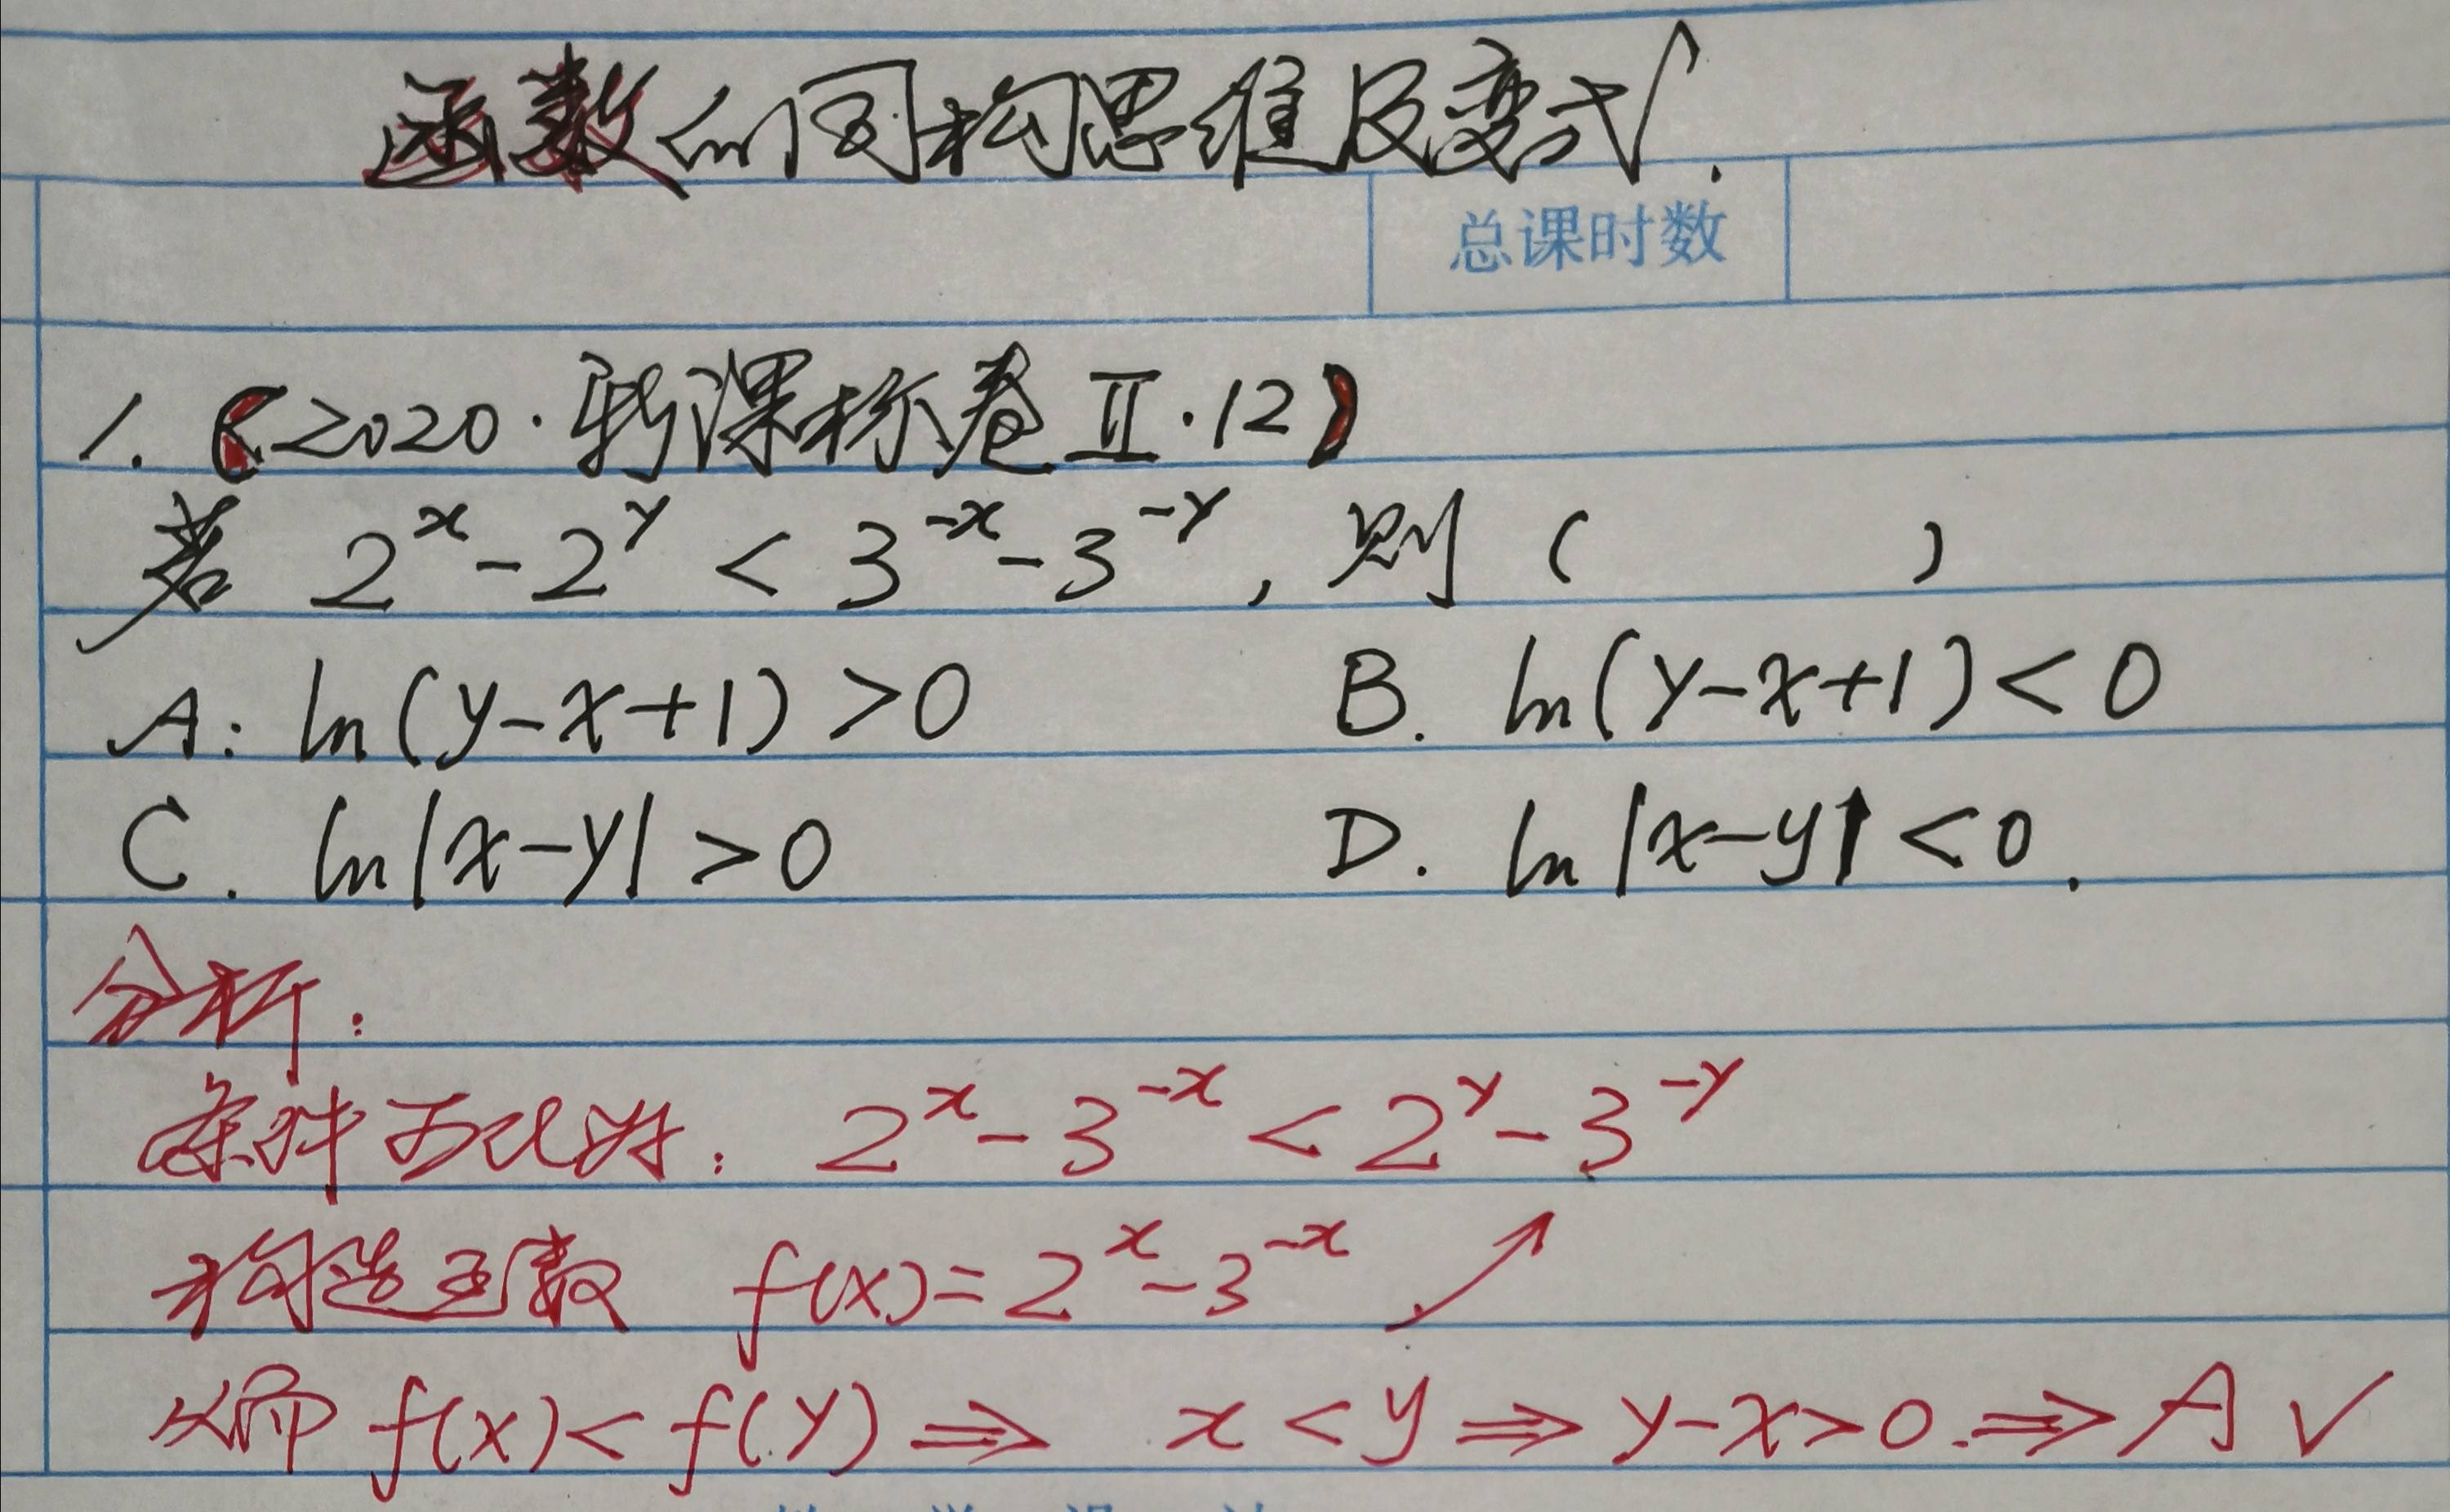 函数的同构思维及变式.
总课时数
1. (2020·新课标卷Ⅱ·12)
若 2^x-2^y < 3^-x-3^-y, 则 (　　)
A: ln(y-x+1) >0　　B. ln(y-x+1) < 0
C. ln|x-y| >0　　D. ln|x-y| <0.
分析:
条件可化为: 2^x-3^-x < 2^y-3^-y
构造函数 f(x)=2^x-3^-x ↗
从而 f(x)< f(y) ⇒ x < y ⇒ y-x>0. ⇒ A ✓